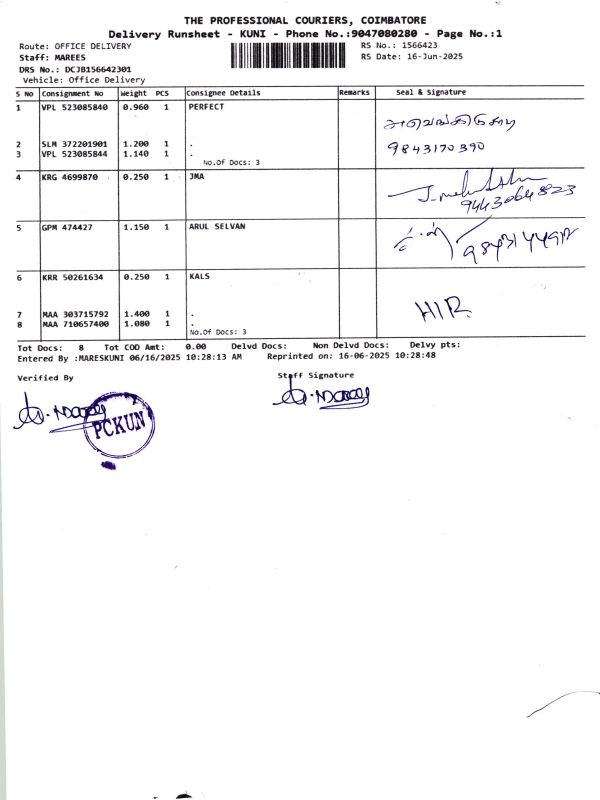 THE PROFESSIONAL COURIERS, COIMBATORE
Delivery Runsheet - KUNI - Phone No.:9047080280 - Page No.:1
Route: OFFICE DELIVERY RS No.: 1566423
Staff: MAREES RS Date: 16-Jun-2025
DRS No.: DCJB156642301
Vehicle: Office Delivery
S No Consignment No Weight PCS Consignee Details Remarks Seal & Signature
1 VPL 523085840 0.960 1 PERFECT
2 SLM 372201901 1.200 1 . 9843170390
3 VPL 523085844 1.140 1 .
No.Of Docs: 3
4 KRG 4699870 0.250 1 JMA
9443064823
5 GPM 474427 1.150 1 ARUL SELVAN
6 KRR 50261634 0.250 1 KALS
HIR
7 MAA 303715792 1.400 1 .
8 MAA 710657400 1.080 1 .
No.Of Docs: 3
Tot Docs: 8 Tot COD Amt: 0.00 Delvd Docs: Non Delvd Docs: Delvy pts:
Entered By :MARESKUNI 06/16/2025 10:28:13 AM Reprinted on: 16-06-2025 10:28:48
Verified By Staff Signature
PCKUN